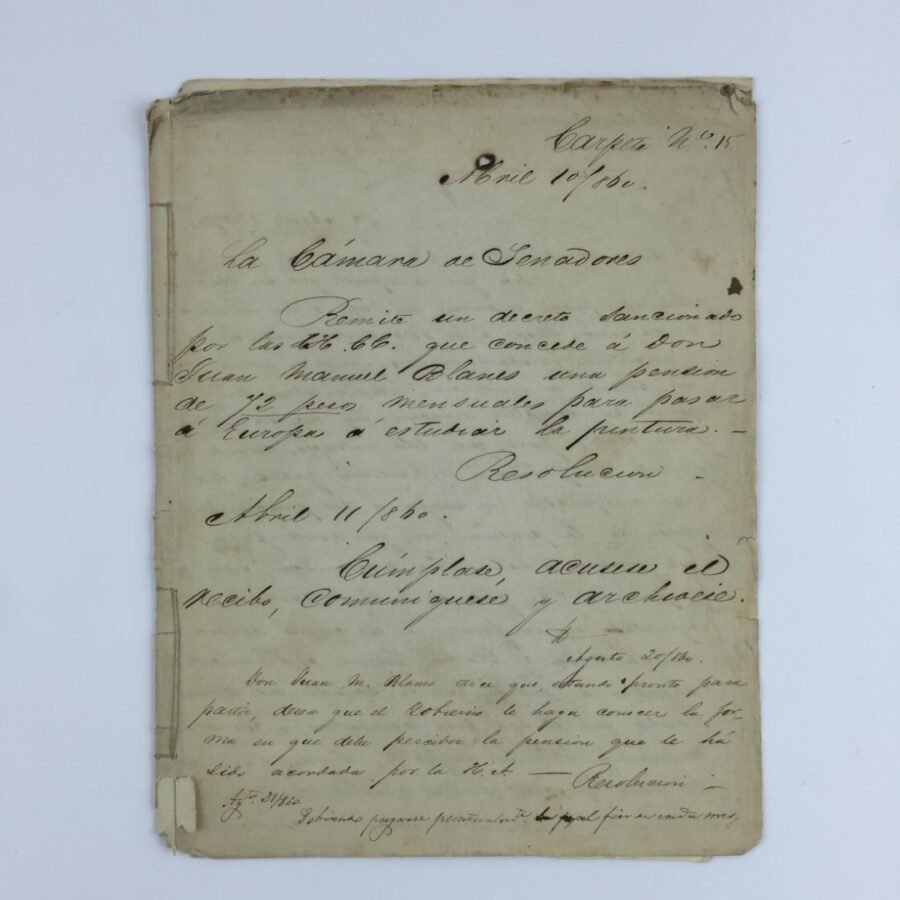 Carpeta Nº. 15
Abril 10/860.
La Cámara de Senadores
Remite un decreto sancionado
por las HH. CC. que concede á Don
Juan Manuel Blanes una pension
de 72 pesos mensuales para pasar
á Europa á estudiar la pintura. —
Resolucion —
Abril 11/860.
Cúmplase, acusese el
recibo, comuniquese y archivese.
Agosto 20/860.
Don Juan M. Blanes dice que, estando pronto para
partir, desea que el Gobierno le haga conocer la for-
ma en que debe percibir la pension que le há
sido acordada por la H. A. — Resolucion —
Agto. 21/860
Debiendo pagarse fin de cada mes,